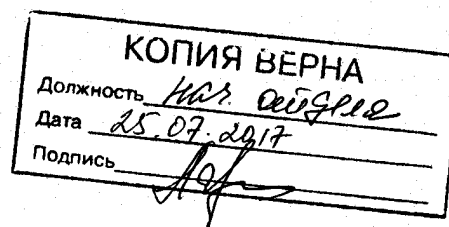 КОПИЯ ВЕРНА
Должность нач. отдела
Дата 25.07.2017
Подпись